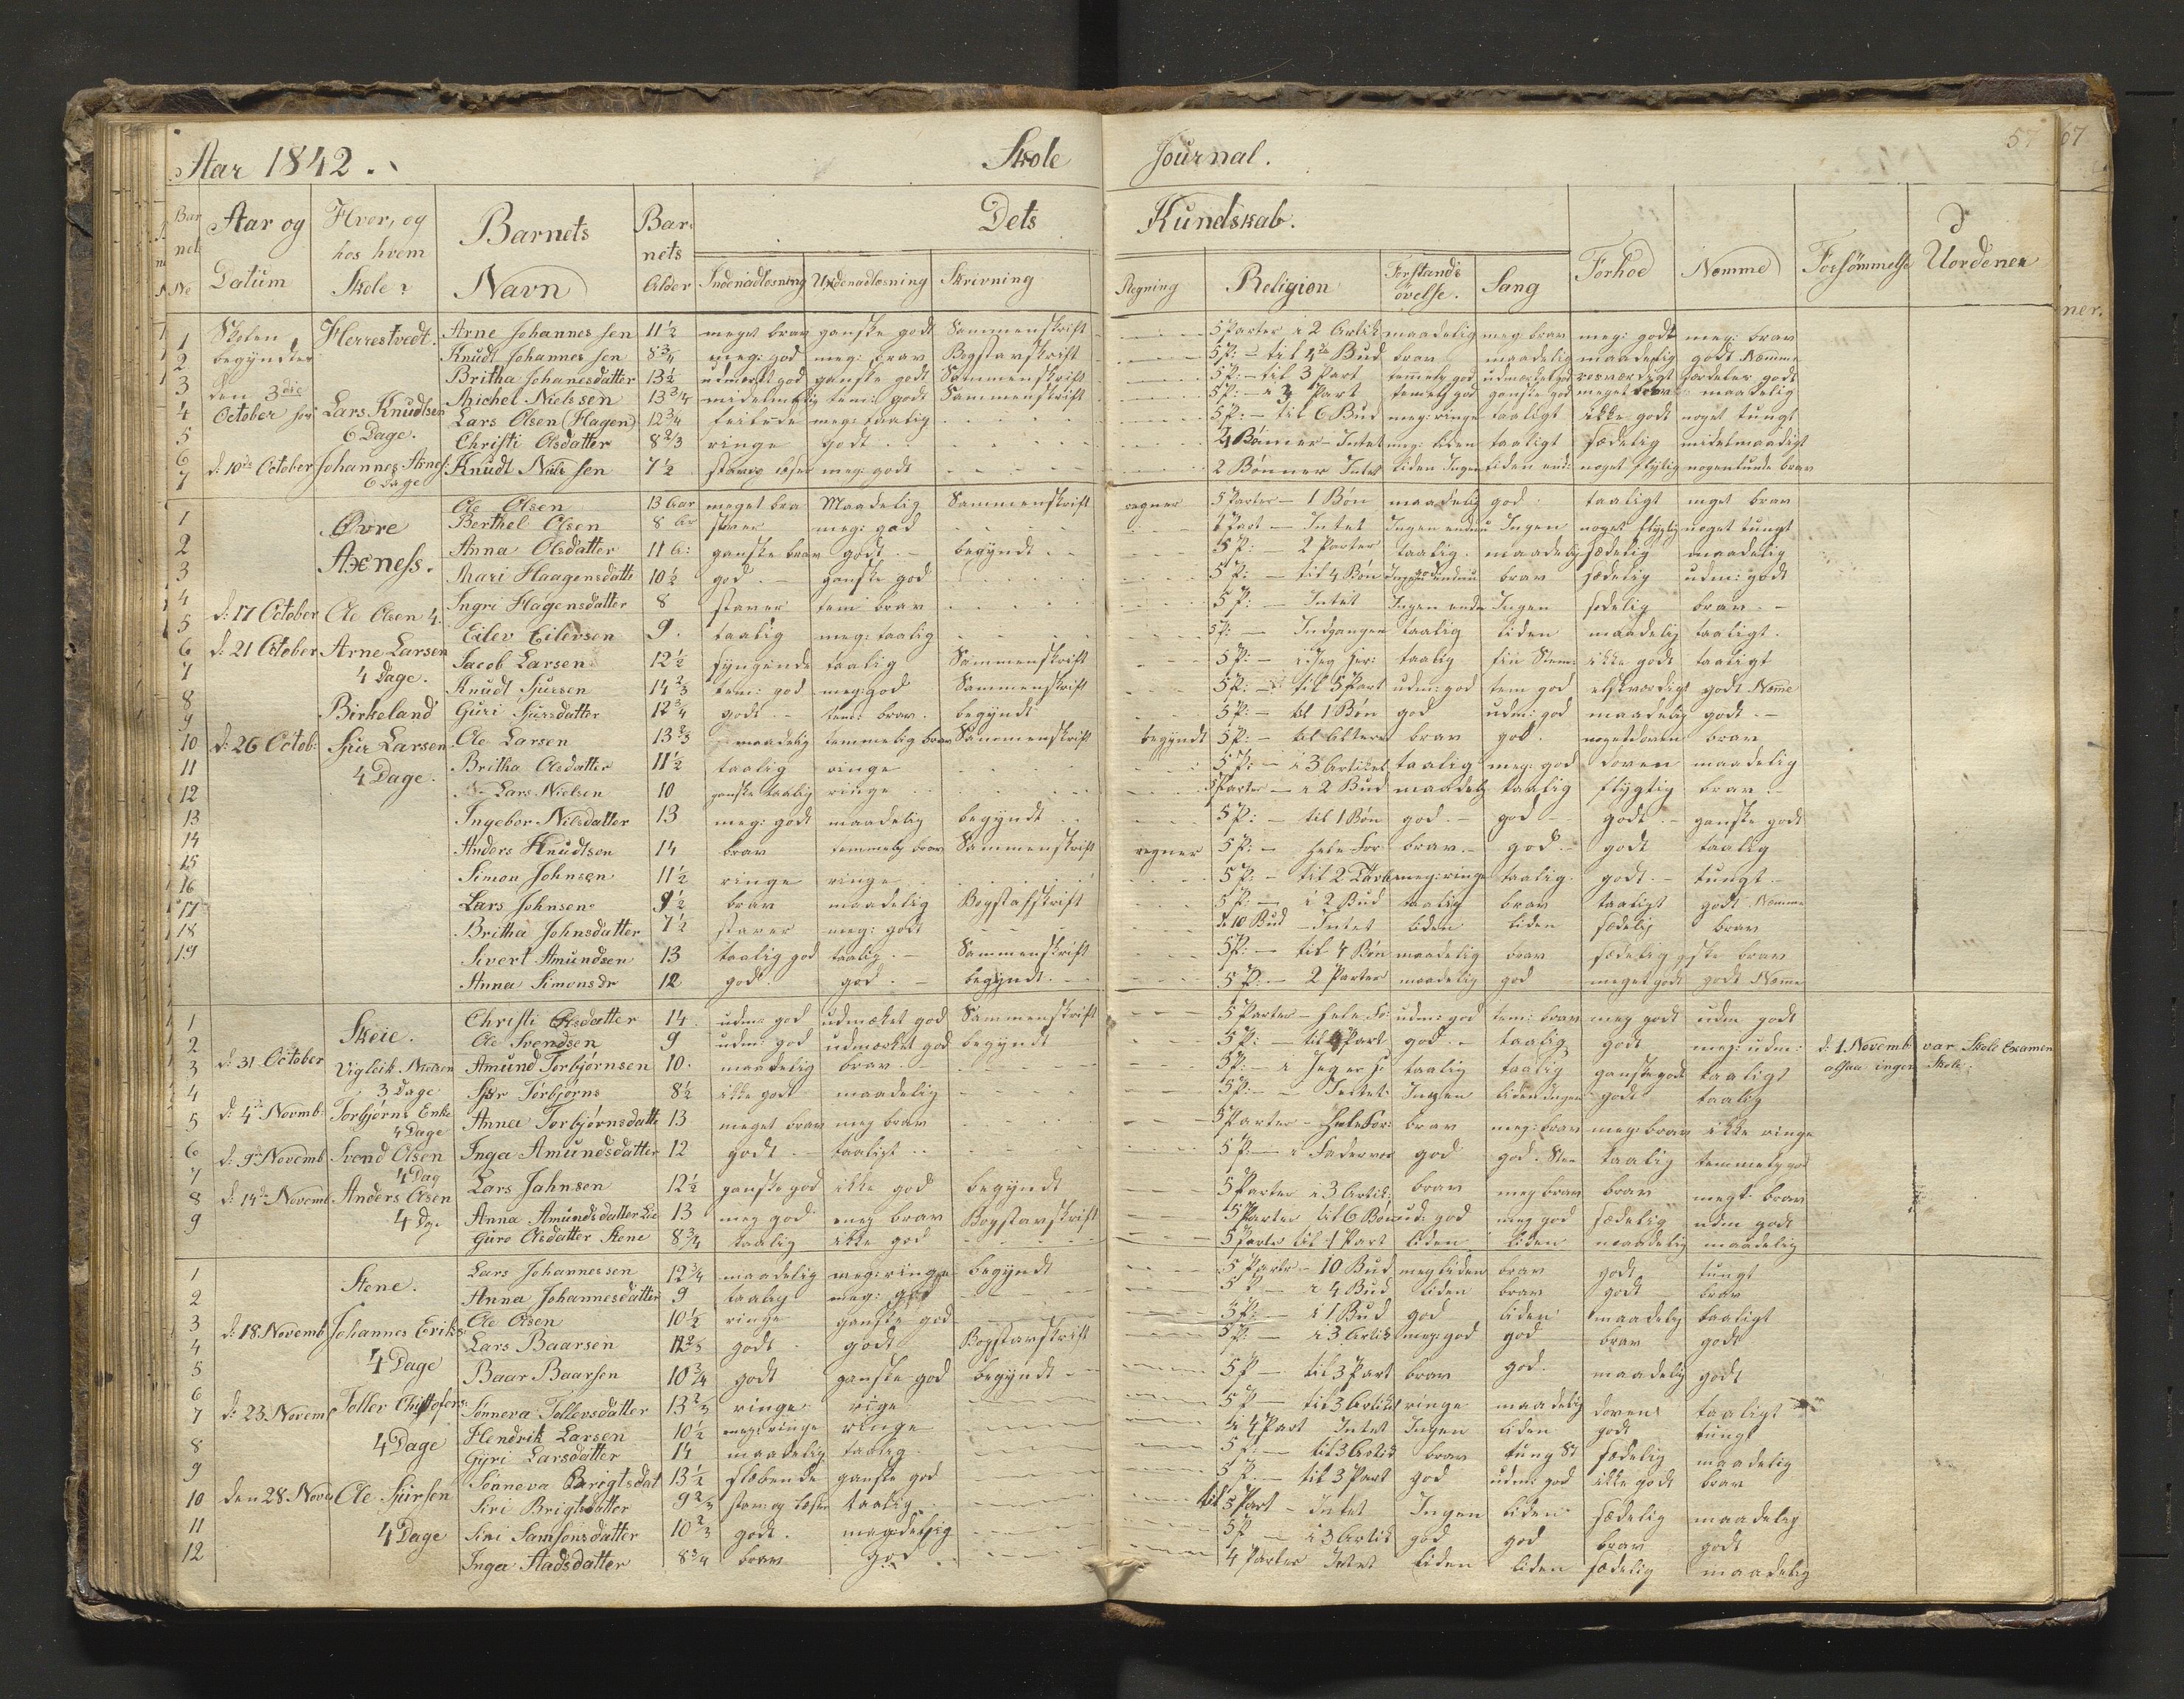 Aar 1842.
Skole
Journal.
57
67
Bar
net
No
Aar og
Datum
Hvor, og
hos hvem
Skole?
Barnets
Navn
Bar-
nets
Alder
Dets
Kundskab.
Indenadlæsning
Udenadlæsning
Skrivning
Regning
Religion
Forstands
övelse.
Sang
Forhod
Nemme
Forsömmelse
Uordener
1 Skolen Herrestvedt. Arne Johannessen 11½ meget brav ganske godt Sammenskrift 5 Parter i 2 Artik maadelig meg: brav meg: godt meg: brav
2 begyndtes Knudt Johannessen 8¾ meg: god meg: brav Bogstavskrift 5 P: til 4de Bud brav maadelig maadelig godt Nemme
3 den 3die Britha Johanesdatter 13½ udmerket god ganske godt Sammenskrift 5 P: til 3 Part temmelig god udmerket god
4 October Lars Knudtsen Michel Nielssen 13¾ midelmaadig tem: godt Sammenskrift 5 P: i 3 Part temmelig god ganske god meget brav maadelig
5 6 Dage. Lars Olsen (Hagen) 12¾ meg: taalig 5 P: til 6 Bud meg: ringe taaligt ikke godt noget tungt
6 Christi Olsdatter 8⅔ ringe godt 4 Bönner Intet meg: liden taaligt sædelig midelmaadigt
7 d: 10de October Johannes Arnes: 6 Dage Knudt Nielssen 7½ staver læser meg: godt 2 Bönner Intet liden Ingen liden end: noget flygtig nogenlunde brav
1 Øvre Ole Olsen 13 Aar meget bra Maadelig Sammenskrift regner 5 Parter 1 Bön maadelig god taaligt meget brav
2 Axness. Berthel Olsen 8 Ar staver meg: god Part Intet Ingen endnu Ingen noget flygtig noget tungt
3 Anna Olsdatter 11 A: ganske brav godt begyndt 5 P: 2 Parter taalig maadelig sædelig maadelig
4 Mari Haagensdatte 10½ god ganske god 5 P: til 4 Bön Ingen endnu brav sædelig udm: godt
5 d: 17 October Ole Olsen 4. Ingri Hagensdatter 8 staver tem brav 5 P: Intet Ingen endn Ingen sedelig brav
6 d: 21 October Arne Larsen Eilev Eilevsen 9. taalig meg: taalig 5 P: Indgangen taalig liden maadelig taaligt.
7 4 Dage. Jacob Larsen 12½ syngende taalig Sammenskrift 5 P: taalig fin Stem: ikke godt taaligt
8 Knudt Sjursen 14⅔ tem: god meg: god Sammenskrift 5 P: til 5 Part udm: god tem god elskværdigt godt Neme
9 Birkeland Guri Sjursdatter 12¾ godt tem: brav. begyndt 5 P: til 1 Bön god udm: god maadelig godt.
10 d: 26 Octob: Sjur Larsen Ole Larsen 13⅔ maadelig temmelig brav Sammenskrift begyndt 5 P: til Alteret brav god. noget doven brav
11 4 Dage. Britha Olsdatter 11½ taalig ringe 5 P: i 3 Artikel taalig meg: god doven maadelig
12 Lars Nielsen 10 ganske taalig ringe 5 Parter i 2 Bud maadelig taalig flygtig brav
13 Ingebor Nilsdatter 13 meg: godt maadelig begyndt 5 P: til 1 Bön god god godt ganske godt
14 Anders Knudtsen 14 brav temmelig brav Sammenskrift regner 5 P: hele For brav god godt taalig
15 Simon Johnsen 11½ ringe ringe 5 P: til 2 meg: ringe taalig. godt tungt
16 Lars Johnsen 9½ brav maadelig Bogstafskrift 5 P: i 2 Bud taalig brav taaligt godt Nemme
17 Britha Johnsdatter 7½ staver meg: godt de 10 Bud Intet liden liden sædelig brav
18 Sivert Amundsen 13 taalig god taalig Sammenskrift 5 P: til 4 Bön maadelig brav sædelig brav
19 Anna Simonsdr 12 god. god begyndt 5 P: 2 Parter maadelig god meget godt godt Neme
1 Skeie. Christi Olsdatter 14 udm: god udmæket god Sammenskrift 5 Parter hele Fo: udm: god tem: brav meg godt udm godt
2 Ole Svendsen 9 udm: god udmærket god begyndt 5 P: til 4 Part god taalig godt meg: udm: d: 1 Novemb: var Skole Examen
3 d: 31 October Vigleik Nielsen Amund Torbjörnsen 10. maadelig brav 5 P: i Jeg er taalig taalig ganske godt taaligt altsaa ingen Skole.
4 3 Dage Sjur Torbjörns 8½ ikke godt maadelig 5 P: Intet: Ingen liden Ingen godt taalig
5 d: 4de Novmb: Torbjörns Enke 4 Dage Anna Torbjörnsdatte 13 meget brav meg brav 5 Parter Hele For: brav meg: brav meg: brav ikke ringe
6 d: 9de Novemb Svend Olsen Inga Amundsdatter 12 godt taaligt 5 P: i Fadervor god god Stem taalig temmelig god
7 4 Dag Lars Jahnsen 12½ ganske god ikke god begyndt 5 Parter i 3 Artik: brav meg brav brav megt brav
8 d: 14de Novemb Anders Olsen Anna Amundsdatter Lie 13 meg god meg brav Bogstavskrift 5 Parter til 6 Bön ud: god meg god sædelig udm godt
9 4 Dg. Guro Olsdatter Stene 8¾ taalig ikke god 5 Parter til 1 Part liden liden maadelig maadelig
1 Stene. Lars Johannessen 12¾ maadelig meg: ringe begyndt 5 Parter 10 Bud meg liden brav godt tungt
2 Anna Johannesdatter 9 taalig meg: god 5 P i 4 Bud liden brav godt brav
3 d: 18. Novemb Johannes Eriks Ole Olsen 10½ ringe ganske god 5 P: i 1 Bud god liden maadelig taaligt
4 Lars Baarsen 12⅔ godt godt Bogstavskrift 5 P: i 3 Artik meg: god god brav godt
5 4 Dage Baar Baarsen 10¾ godt ganske god begyndt 5 P til 3 Part brav god. maadelig godt
6 Toller Christofers: Sönneva Tollevsdatter 13⅔ ringe ringe 5 P til 3 Artikel ringe maadelig doven taaligt
7 d: 23. Novem Hendrik Larsen 10½ meg: ringe ringe 4 Part Intet Ingen liden godt tungt
8 4 Dage Gyri Larsdatter 14 maadelig taalig 5 P: til 3 Artik brav tung St sædelig maadelig
9 Sönneva Brigtsdat 13½ slæbende ganske god 5 P. til 3 Part god udm: god ikke godt brav
10 den 28 Nov: Ole Sjursen Siri Brigtsdatter 9⅔ stav: og læser taalig til 5 Part Intet Ingen liden sædelig maadelig
11 4 Dage Siri Samsonsdatter 10⅔ godt. maadelig 5 P i 3 Artik god god brav godt
12 Inga Aadsdatter 8¾ brav god 4 Parter Intet liden liden sædelig maadelig
ner.